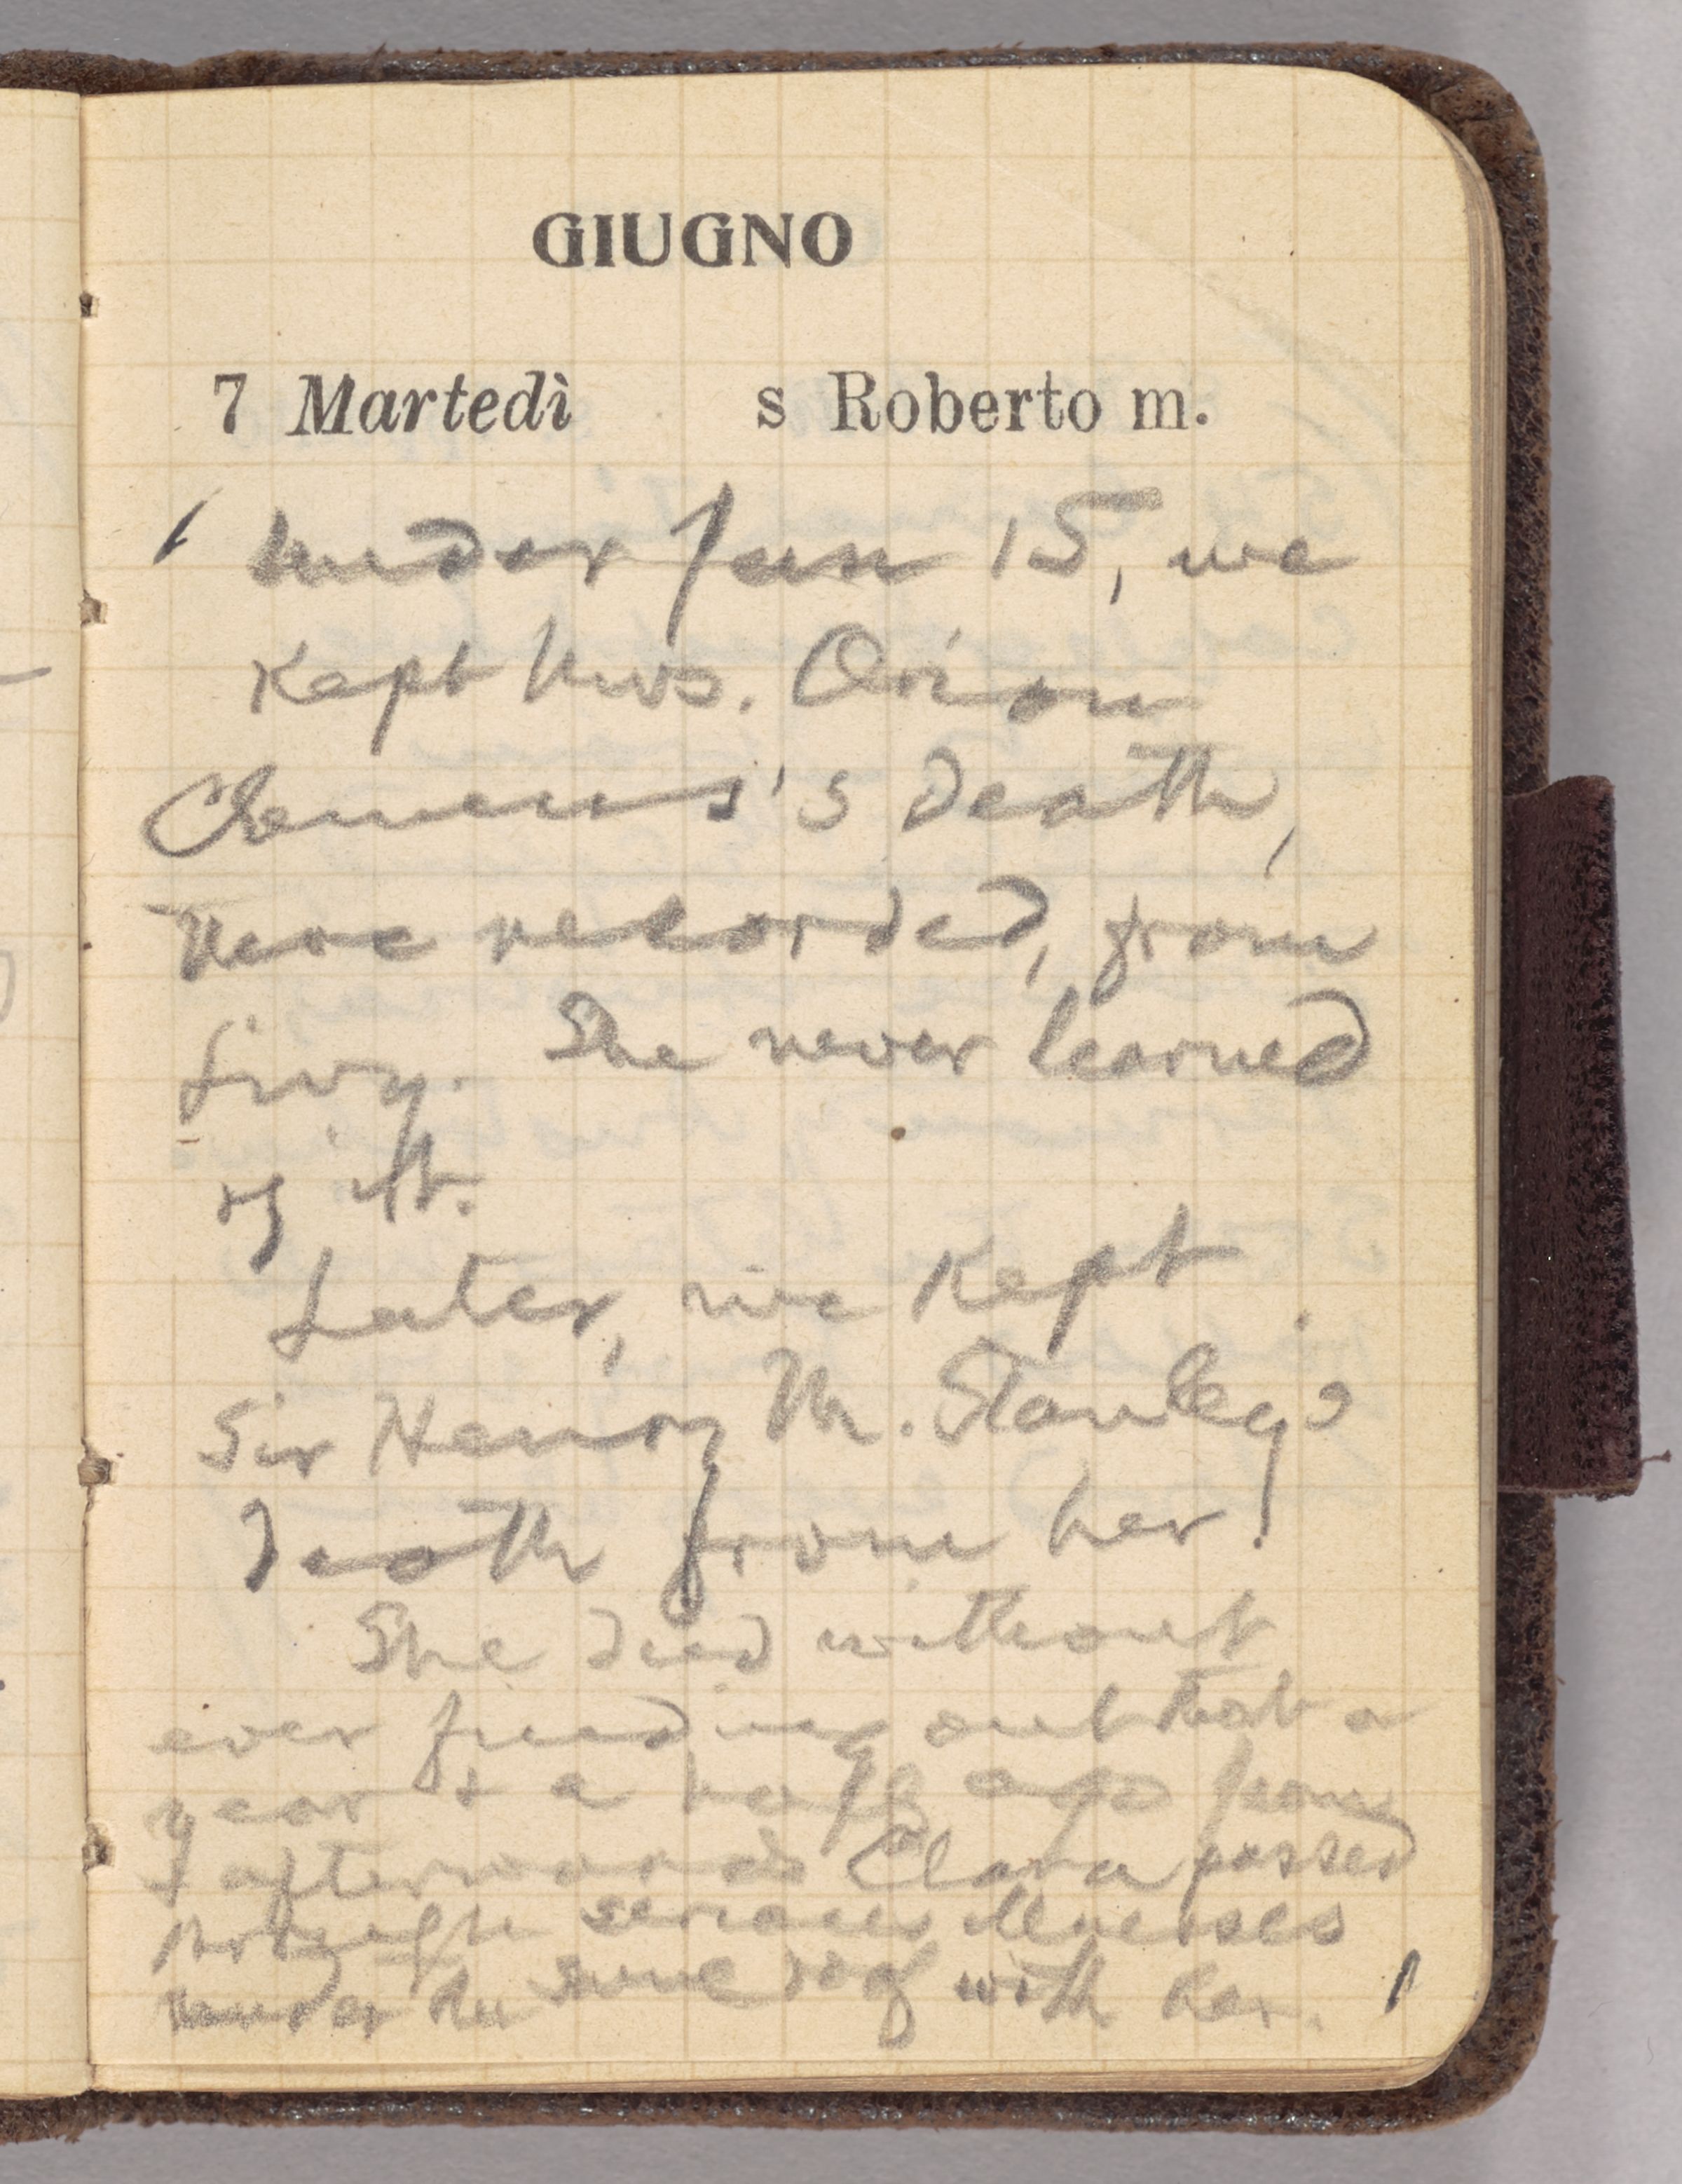 GIUGNO
7 Martedì s Roberto m.
Under Jan 15, we
kept Mrs. Orion
Clemens's death,
there recorded, from
Livy. She never learned
of it.
Later, we kept
Sir Henry M. Stanley's
death from her.
She died without
ever finding out that a
year & a half ago Jean
& afterwards Clara passed
through serious illnesses
under the same roof with her.